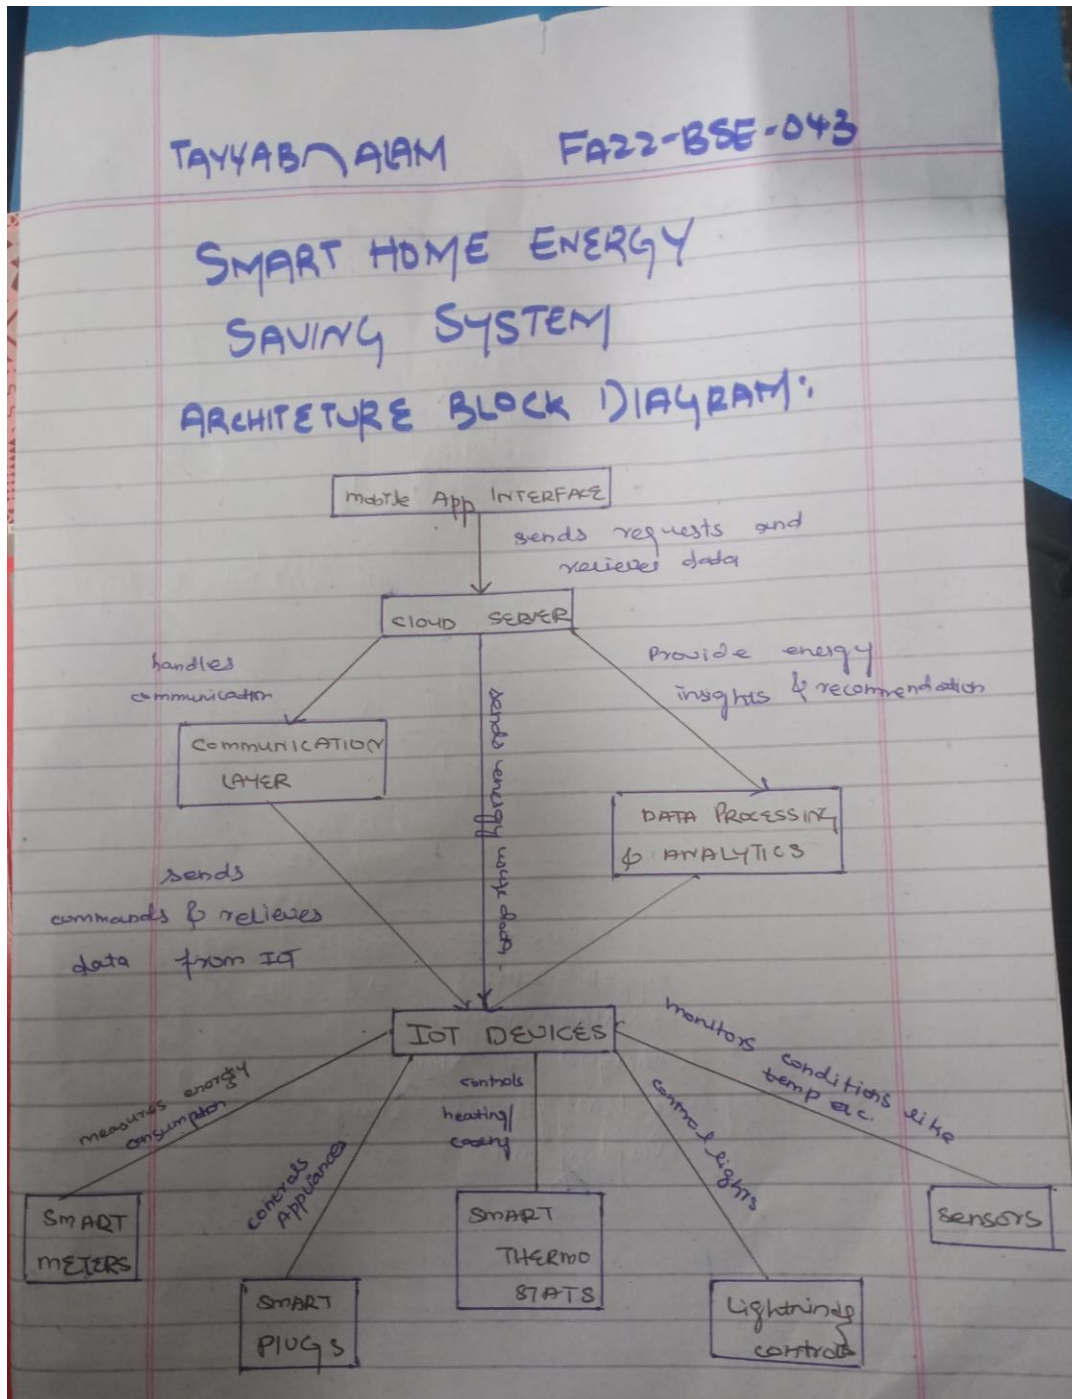 TAYYAB ALAM FA22-BSE-043
SMART HOME ENERGY
SAVING SYSTEM
ARCHITETURE BLOCK DIAGRAM:
mobile App INTERFACE
sends requests and
relieves data
CLOUD SERVER
handles
communication
Provide energy
insights & recommendation
sends energy data
COMMUNICATION
LAYER
DATA PROCESSING
& ANALYTICS
sends
commands & relieves
data from IoT
IOT DEVICES
measures energy
consumption
controls
Appliances
controls
heating/
cooling
control lights
monitors conditions like
temp etc
SMART
METERS
SMART
PLUGS
SMART
THERMO
STATS
Lightning
controls
sensors